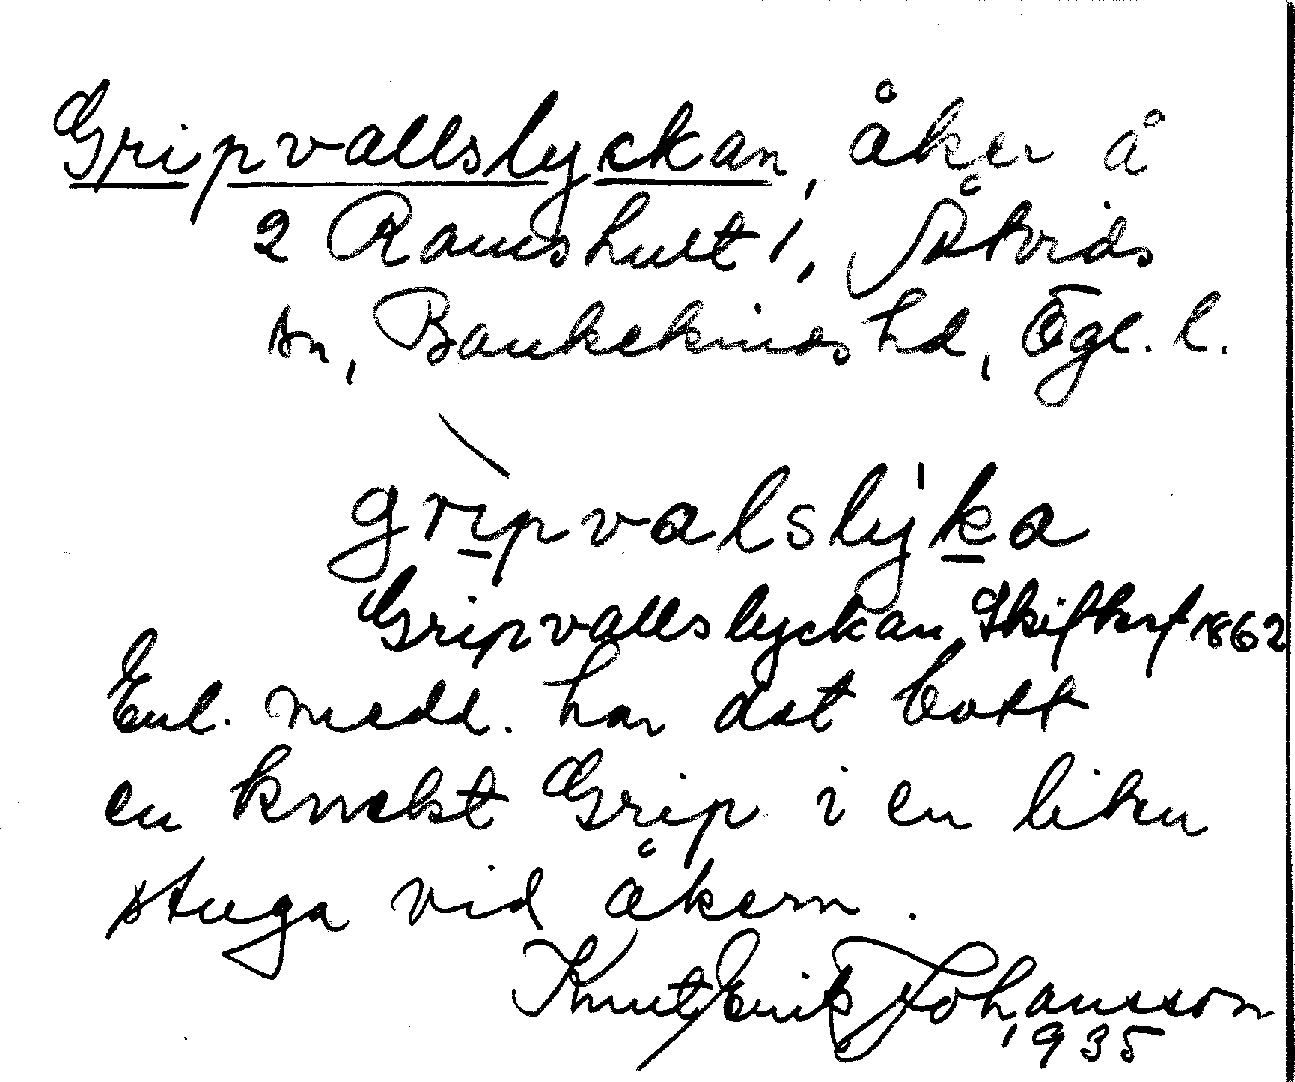 Gripvallslyckan, åker å
2 Ramshult 1, Åtvids
sn, Bankekinds hd, Ögl. l.
gripvalslyka
Gripvallslyckan, Skifteskt 1862
Enl. medd. har det bott
en knekt Grip i en liten
stuga vid åkern.
Knut Erik Johansson
1935